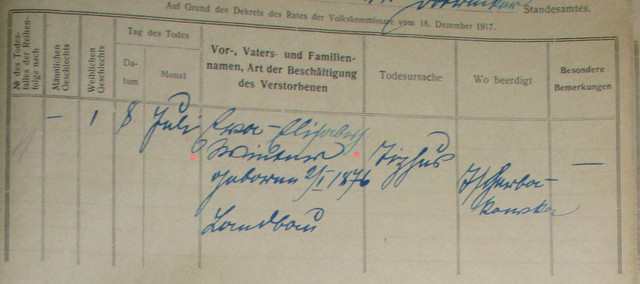 Standesamtes.
Auf Grund des Dekrets des Rates der Volkskommissare vom 18. Dezember 1917.
№ des Todesfalles der Reihenfolge nach
Männlichen Geschlechts
Weiblichen Geschlechts
Tag des Todes
Da-
tum
Monat
Vor-, Vaters- und Familien-
namen, Art der Beschäftigung
des Verstorbenen
Todesursache
Wo beerdigt
Besondere
Bemerkungen
— 1 8 Juli
geboren 2/I 1876
Landbau
Tizhus
Tscherba-
kowka
—